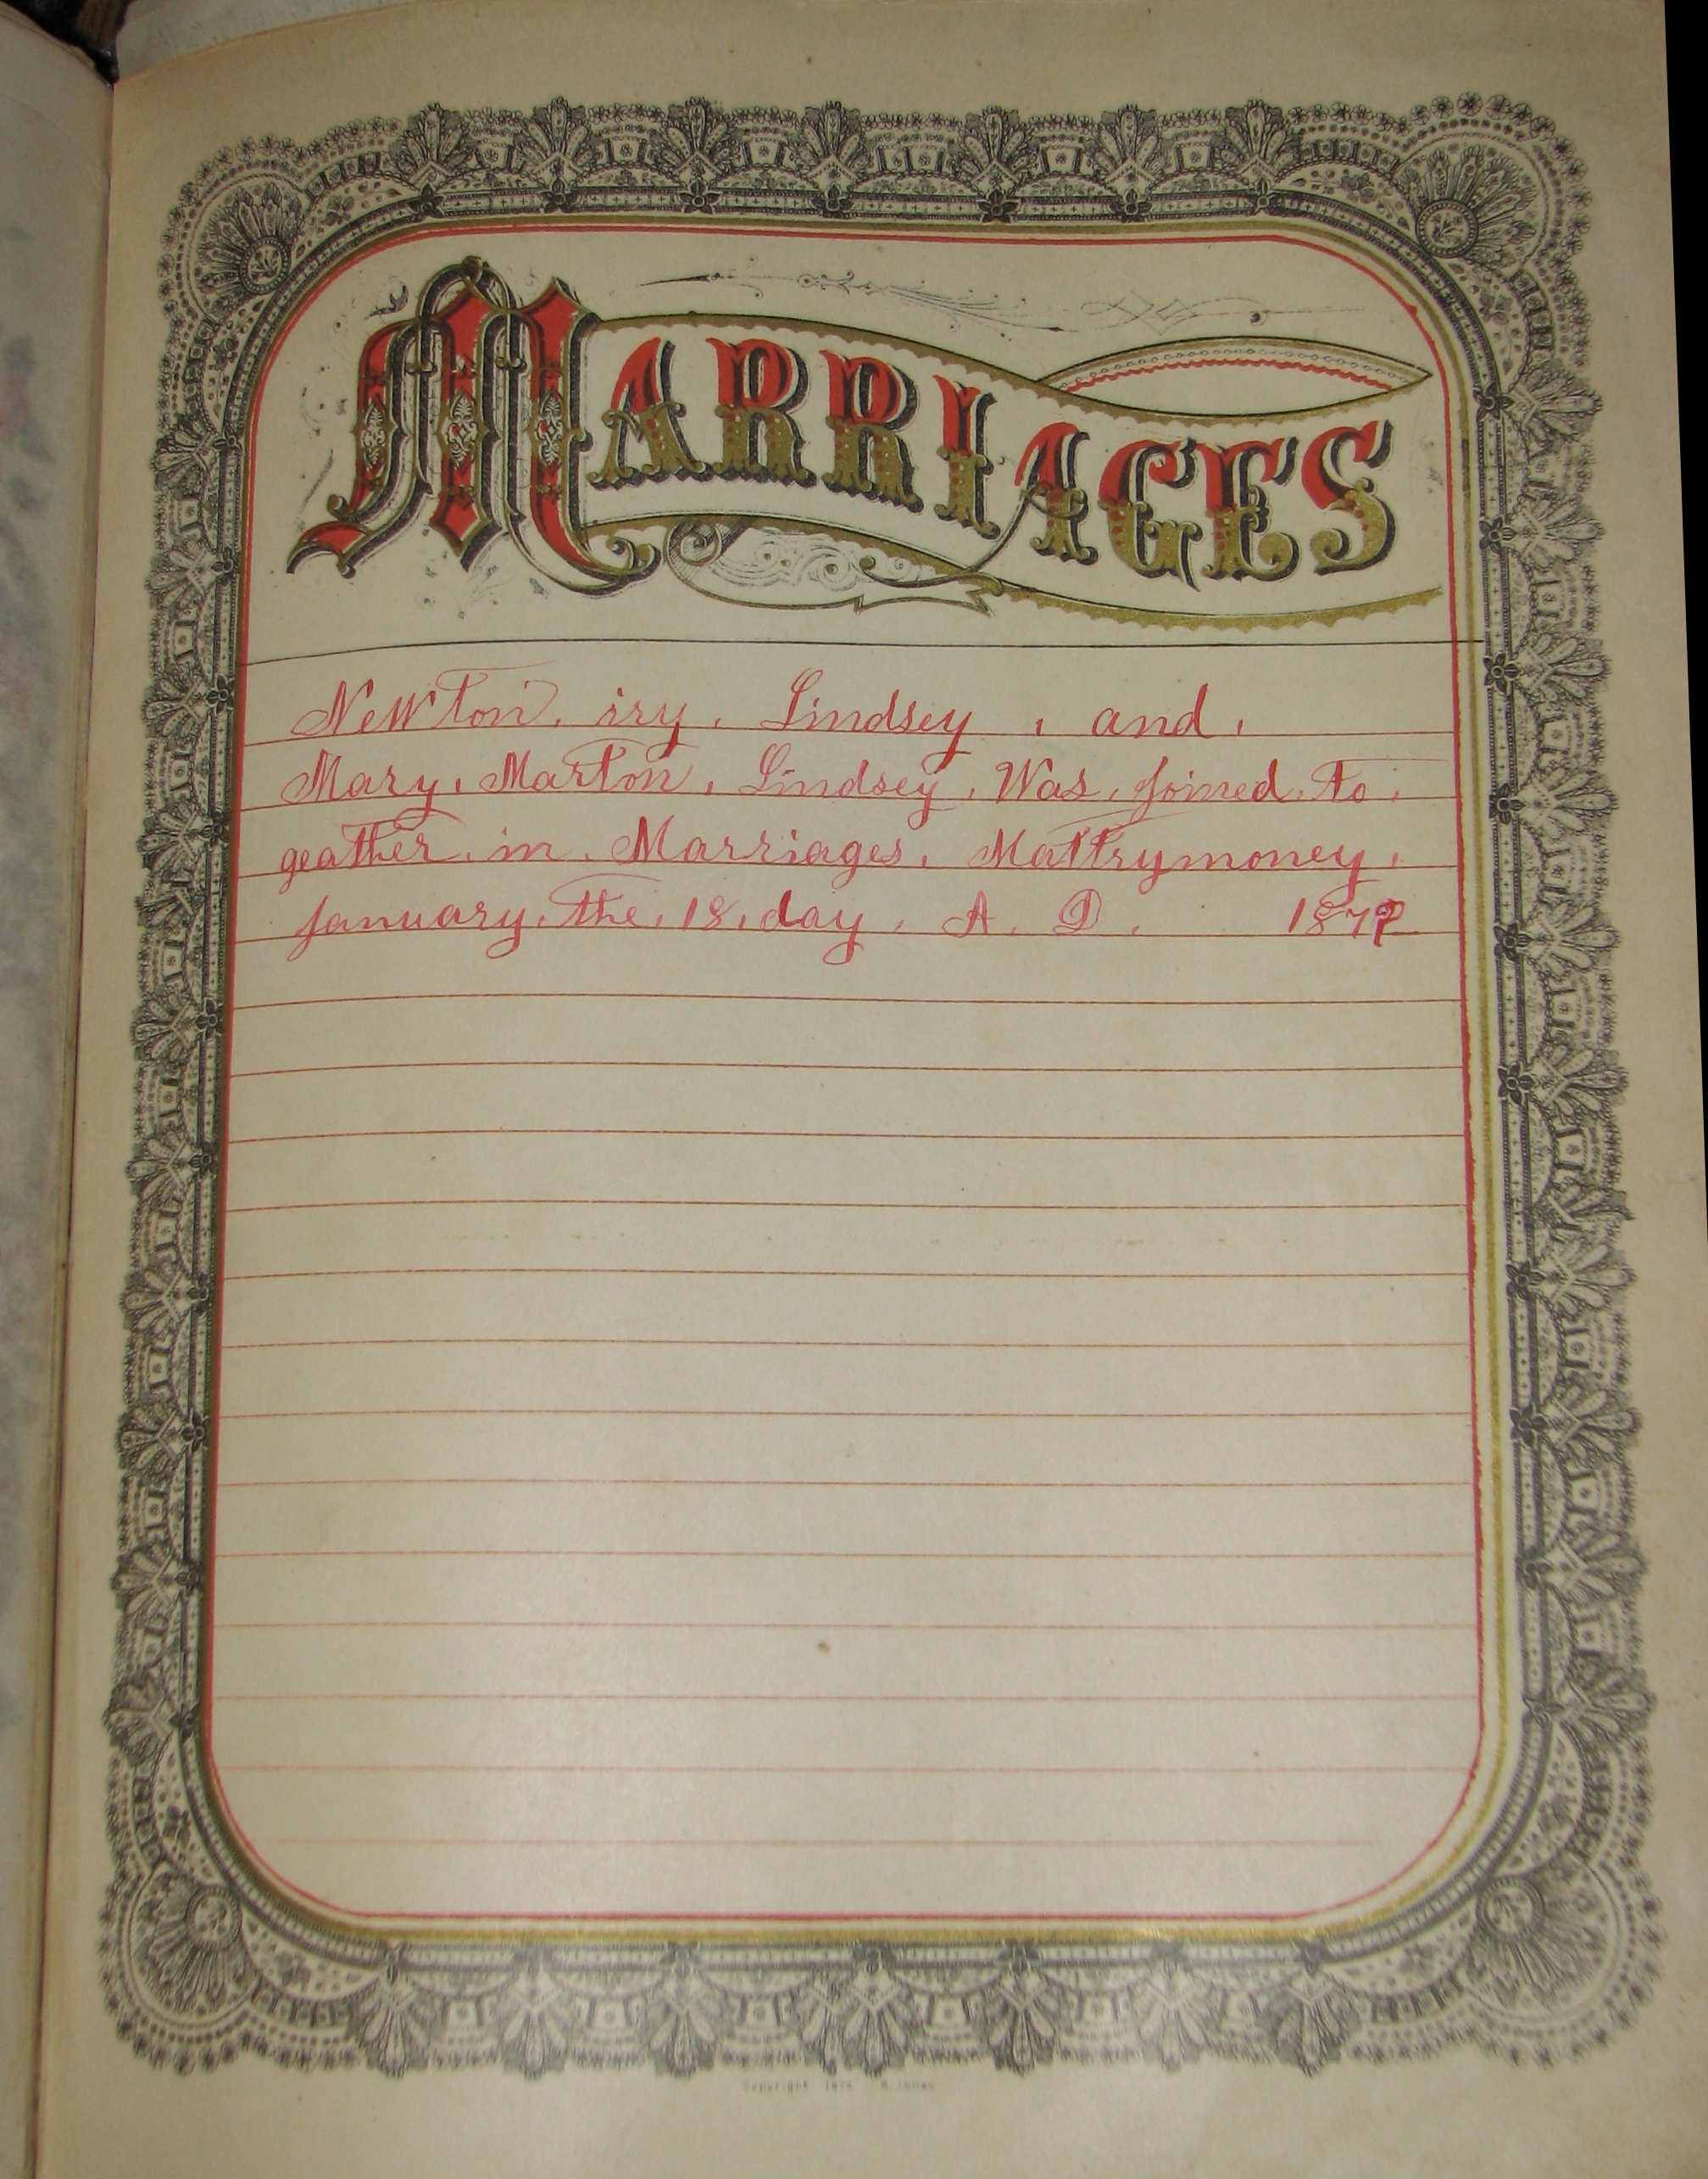 MARRIAGES
Newton. iry. Lindsey , and ,
Mary. Marton , Lindsey . Was . joined . to .
geather . in . Marriages . Mattrymoney .
january . the . 18 . day . A . D . 187
Copyright